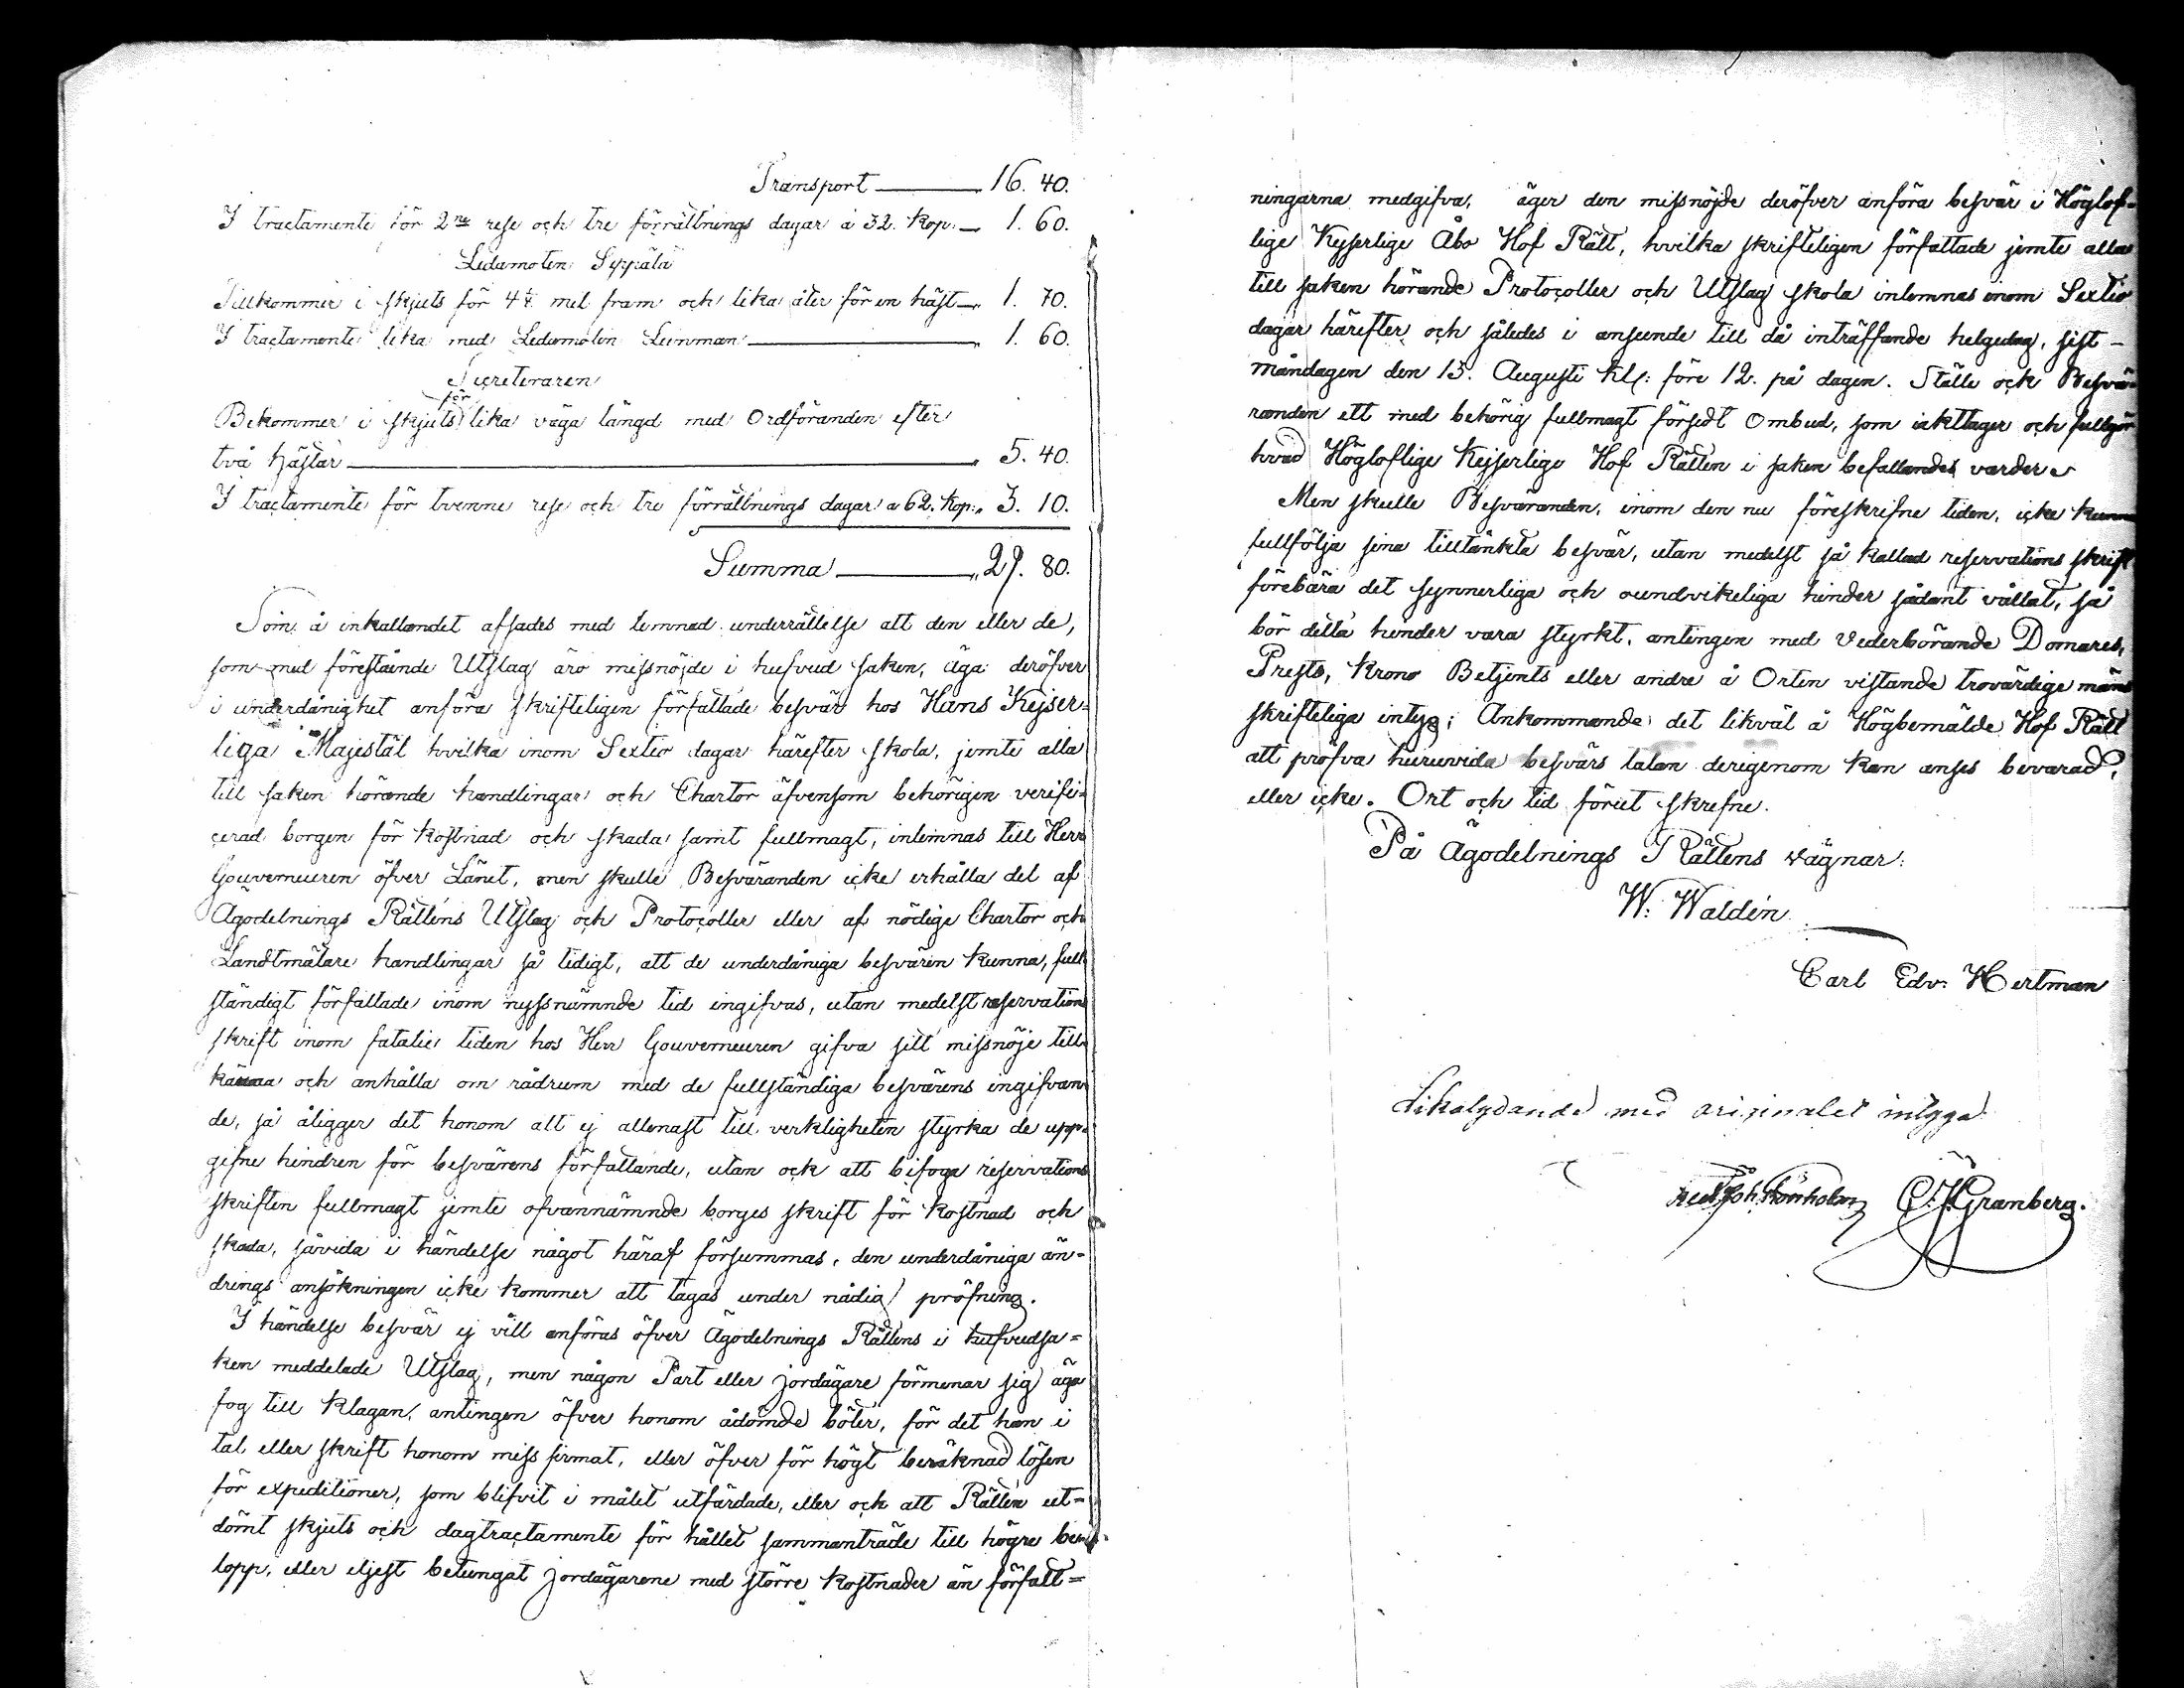 Transport — 16. 40.
I tractamente för 2ne rese och tre förrättnings dagar a 32. Kop. — 1. 60.
Ledamoten Seppälä
Tillkommer i skjuts för 4¼ mil fram och lika åter för en häst — 1. 70.
I tractamente lika med Ledamoten Lunman — 1. 60.
Secreteraren
Bekommer i skjuts för lika väga längd med Ordföranden efter
två hästar — 5. 40.
I tractamente för tvenne rese och tre förrättnings dagar a 62. Kop. „ 3. 10.
Summa — „ 29. 80.
Som å inkallandet afsades med lemnad underrättelse att den eller de,
som med förestående Utslag äro missnöjde i hufvud saken, äga deröfver
i underdånighet anföra skrifteligen författade besvär hos Hans Kejser=
liga Majestät hvilka inom Sextio dagar härefter skola, jemte alla
till saken hörande handlingar och Chartor äfvensom behörigen verifi=
cerad borgen för kostnad och skada samt fullmagt, inlemnas till Herr
Gouverneuren öfver Länet, men skulle Besväranden icke erhålla del af
Ägodelnings Rättens Utslag och Protocoller eller af nödige Chartor och
Landtmätare handlingar så tidigt, att de underdåniga besvären kunna, full
ständigt författade inom nyssnämnde tid ingifvas, utan medelst reservations
skrift inom fatalie tiden hos Herr Gouverneuren gifva sitt missnöje till
känna och anhålla om rådrum med de fullständiga besvärens ingifvan
de, så åligger det honom att ej allenast till verkligheten styrka de upp=
gifne hindren för besvärens författande, utan ock att bifoga reservations
skriften fullmagt jemte ofvannämnde borges skrift för kostnad och
skada, såvida i händelse något häraf försummas, den underdåniga än=
drings ansökningen icke kommer att tagas under nådig pröfning.
I händelse besvär ej vill anföras öfver Ägodelnings Rättens i hufvudsa=
ken meddelade Utslag, men någon Part eller jordägare förmenar sig äga
fog till klagan, antingen öfver honom ådömde böter, för det han i
tal eller skrift honom miss firmat, eller öfver för högt beräknad lösen
för expeditioner, som blifvit i målet utfärdade, eller ock att Rätten ut=
dömt skjuts och dagtractamente för hållet sammanträde till högre be=
lopp, eller eljest betungat jordägarene med större kostnader än författ=
ningarna medgifva, äger den missnöjde deröfver anföra besvär i Höglof=
lige Kejserlige Åbo Hof Rätt, hvilka skrifteligen författade jemte alla
till saken hörande Protocoller och Utslag skola inlemnas inom Sextio
dagar härefter och således i anseende till då inträffande helgedag, sist -
måndagen den 13. Augusti Kl: före 12. på dagen. Ställe ock Besvä=
randen ett med behörig fullmagt försedt Ombud, som iakttager och fullgör
hvad Högloflige Kejserlige Hof Rätten i saken befallandes varder.
Men skulle Besväranden, inom den nu föreskrifne tiden, icke kunna
fullfölja sina tilltänkta besvär, utan medelst så kallad reservations skrift
förebära det synnerliga och oundvikeliga hinder sådant vållat, så
bör detta hinder vara styrkt, antingen med Vederbörande Domares,
Prests, Krono Betjents eller andre å Orten vistande trovärdige mäns
skrifteliga intyg; Ankommande det likväl å Högbemälde Hof Rätt
att pröfva huruvida besvärs talan derigenom kan anses bevarad,
eller icke. Ort och tid förut skrefne.
På Ägodelnings Rättens vägnar:
W: Waldén
Carl Edv: Hertman
Likalydande med originalet intyga
C. J. Granberg.